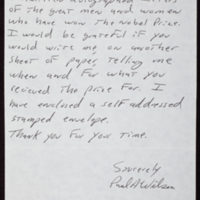 of the great men and women
who have won the Nobel Prize.
I would be grateful if you
would write me on another
sheet of paper, telling me
when and for what you
recieved the prize for. I
have enclosed a self addressed
stamped envelope.
Thank you for your time.
Sincerely
Paul A Wilson